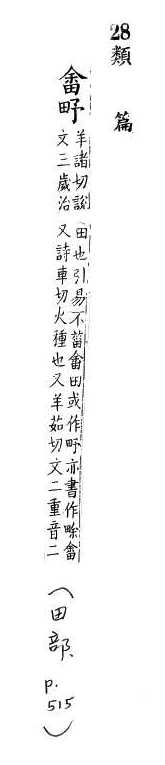 28類篇
畬𤰕
羊諸切說文三歲治
田也引易不菑畬田或作𤰕亦書作畭畬
又詩車切火種也又羊茹切文二重音二
(田部、p.515)